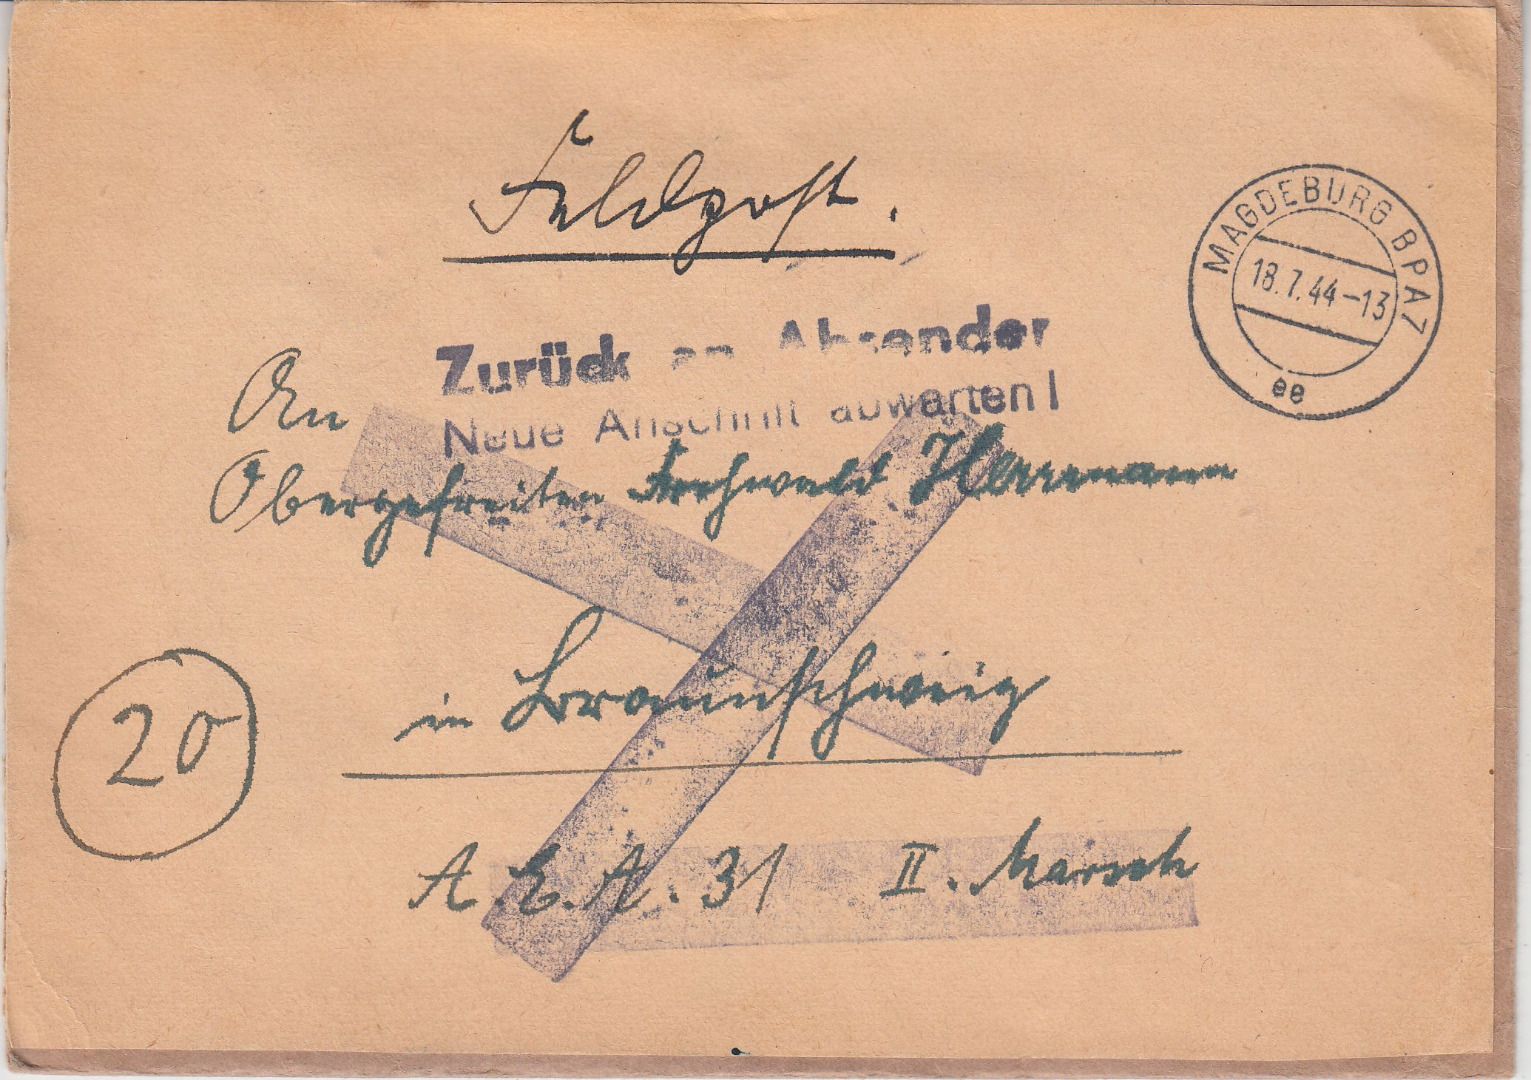 Feldpost.
MAGDEBURG BPA 7
18.7.44-13
ee
Zurück an Absender
Neue Anschrift abwarten!
An
Obergefreiten Herrmann
in Braunschweig
20
A.E.A. 31 II. Marsch